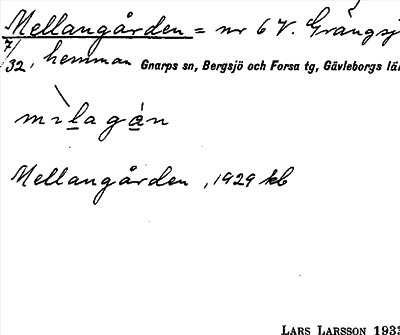 Mellangården = nr 6 V. Grängsj
7/32, hemman Gnarps sn, Bergsjö och Forsa tg, Gävleborgs lä
mɪlagán
Mellangården, 1929 kb
LARS LARSSON 1933